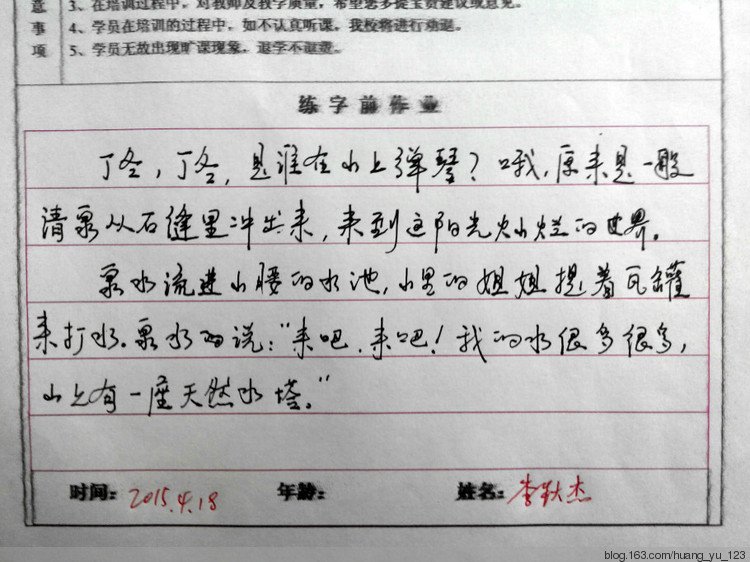 意 3、在培训过程中，对教师及教学质量，希望您多提宝贵建议或意见。
事 4、学员在培训的过程中，如不认真听课，我校将进行劝退。
项 5、学员无故出现旷课现象，退学不退费。
练字前作业
丁冬，丁冬，是谁在山上弹琴？哦，原来是一股
清泉从石缝里冲出来，来到这阳光灿烂的世界。
泉水流进山腰的水池，山里的姐姐提着瓦罐
来打水。泉水 说："来吧，来吧！我的水很多很多，
山上有一座天然水塔。"
时间：2015.4.18 年龄： 姓名：李 杰
blog.163.com/huang_yu_123